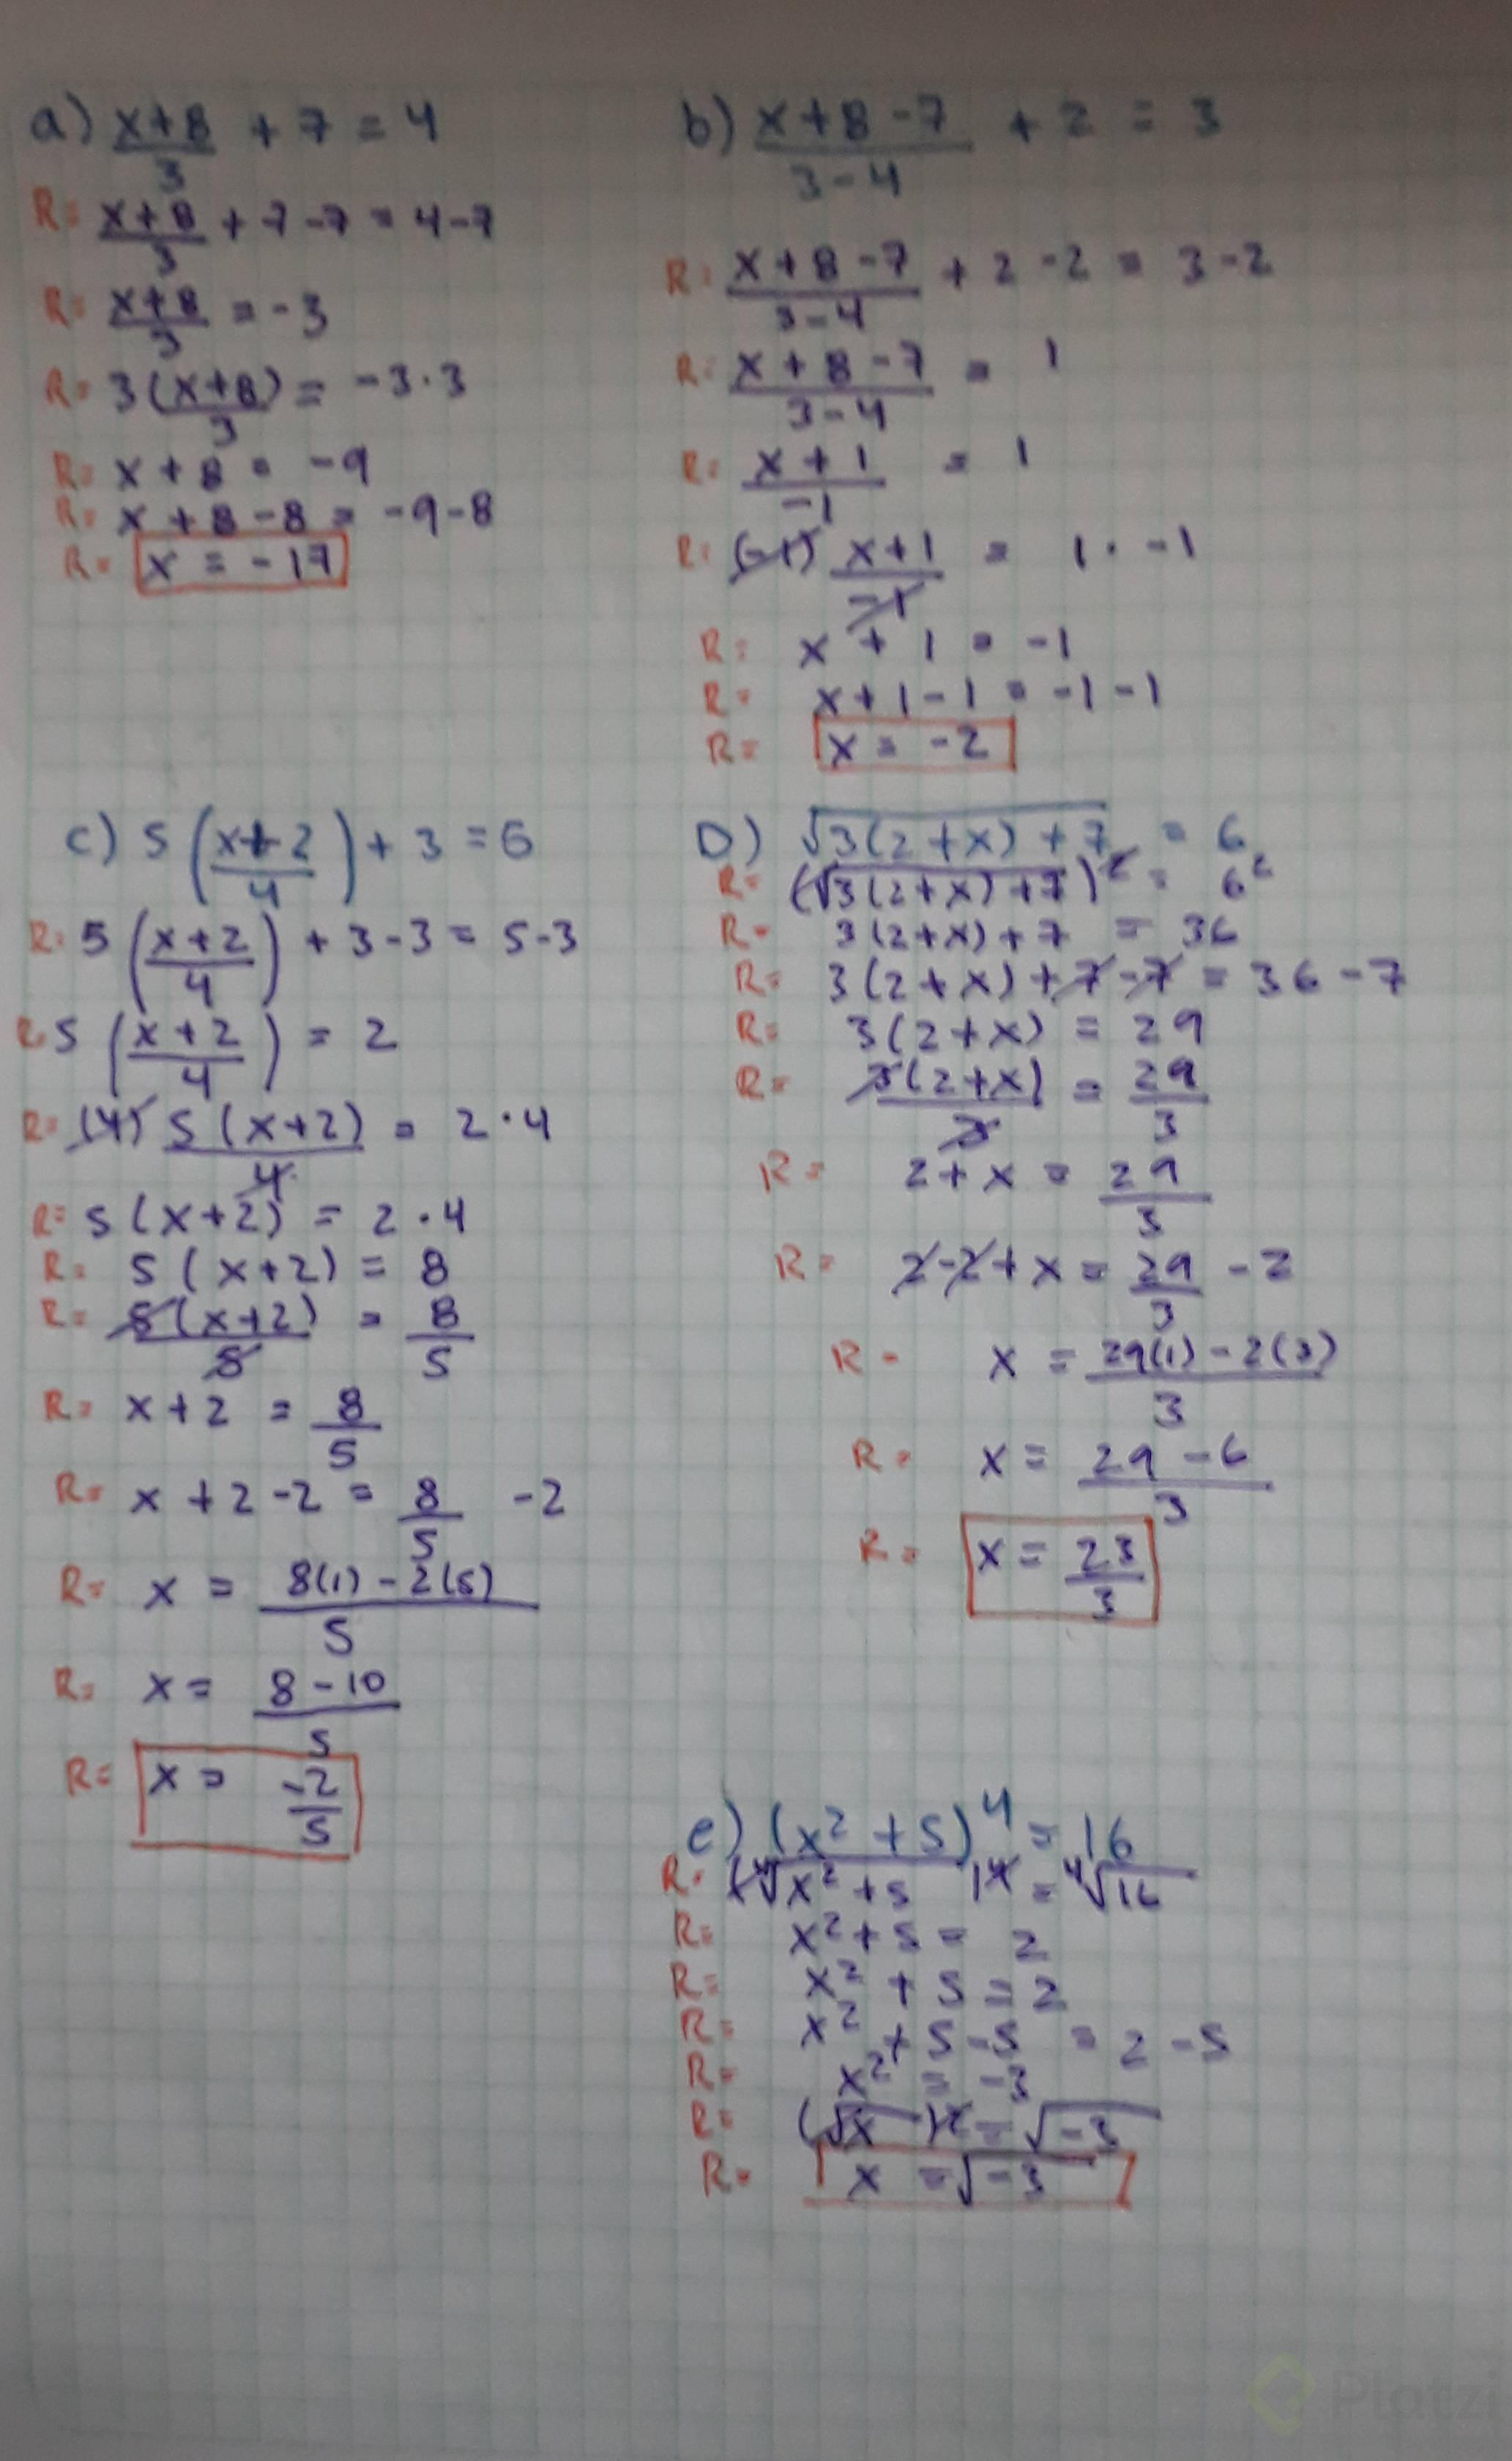 a) (x+8)/3 + 7 = 4
R= (x+8)/3 + 7-7 = 4-7
R= (x+8)/3 = -3
R= 3(x+8)/3 = -3·3
R= x+8 = -9
R= x+8-8 = -9-8
R= x = -17
b) (x+8-7)/(3-4) + 2 = 3
R= (x+8-7)/(3-4) + 2-2 = 3-2
R= (x+8-7)/(3-4) = 1
R= (x+1)/-1 = 1
R= (-1) (x+1)/-1 = 1·-1
R= x+1 = -1
R= x+1-1 = -1-1
R= x = -2
c) 5((x+2)/4) + 3 = 6
R= 5((x+2)/4) + 3-3 = 5-3
R= 5((x+2)/4) = 2
R= (4) 5(x+2)/4 = 2·4
R= 5(x+2) = 2·4
R= 5(x+2) = 8
R= 5(x+2)/5 = 8/5
R= x+2 = 8/5
R= x+2-2 = 8/5 -2
R= x = (8(1)-2(5))/5
R= x = (8-10)/5
R= x = -2/5
D) √(3(2+x)+7) = 6
R= (√(3(2+x)+7))² = 6²
R= 3(2+x)+7 = 36
R= 3(2+x)+7-7 = 36-7
R= 3(2+x) = 29
R= 3(2+x)/3 = 29/3
R= 2+x = 29/3
R= 2-2+x = 29/3 - 2
R= x = (29(1)-2(3))/3
R= x = (29-6)/3
R= x = 23/3
e) (x²+5)⁴ = 16
R= (⁴√x²+5)⁴ = ⁴√16
R= x²+5 = 2
R= x²+5 = 2
R= x²+5-5 = 2-5
R= x² = -3
R= (√x)² = √-3
R= x = √-3
Platzi